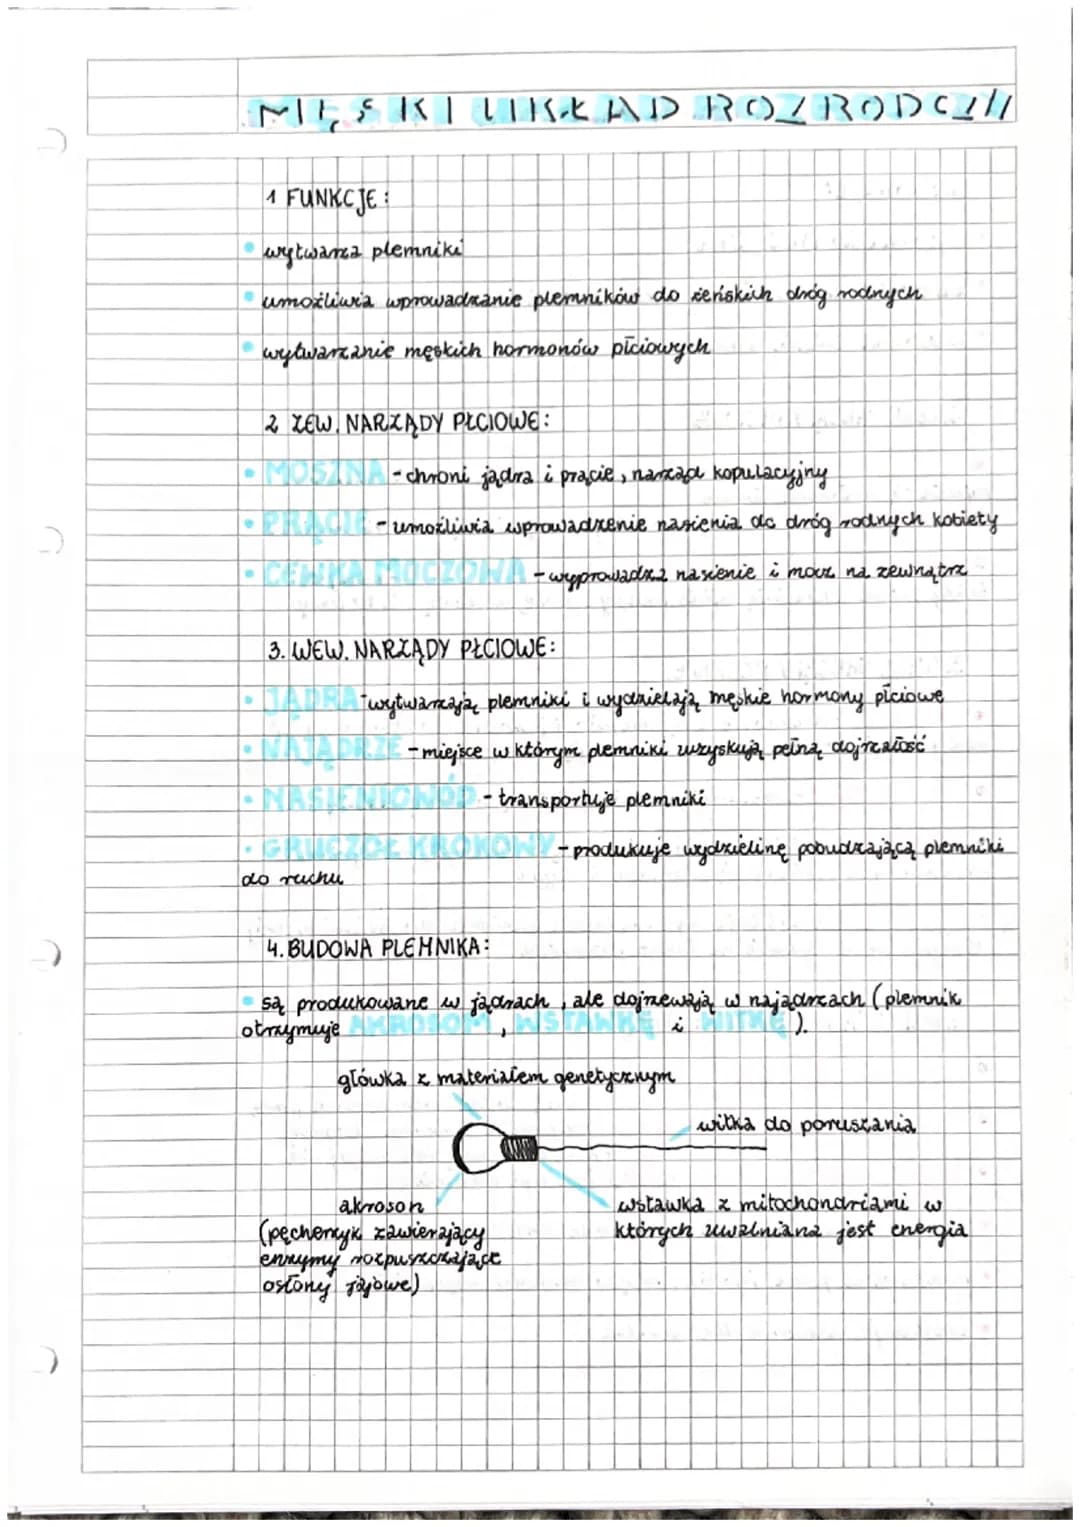 MĘSKI UKŁAD ROZRODCZY
1 FUNKCJE:
• wytwarza plemniki
• umożliwia wprowadzanie plemników do żeńskich dróg rodnych
• wytwarzanie męskich hormonów płciowych
2 ZEW. NARZĄDY PŁCIOWE:
• MOSZNA - chroni jądra i prącie, narząd kopulacyjny
• PRĄCIE - umożliwia wprowadzenie nasienia do dróg rodnych kobiety
• CEWKA MOCZOWA - wyprowadza nasienie i mocz na zewnątrz
3. WEW. NARZĄDY PŁCIOWE:
• JĄDRA - wytwarzają plemniki i wydzielają męskie hormony płciowe
• NAJĄDRZE - miejsce w którym plemniki uzyskują pełną dojrzałość
• NASIENIOWÓD - transportuje plemniki
• GRUCZOŁ KROKOWY - produkuje wydzielinę pobudzającą plemniki
do ruchu
4. BUDOWA PLEMNIKA:
• są produkowane w jądrach, ale dojrzewają w najądrzach (plemnik
otrzymuje AKROSOM, WSTAWKĘ i WITKĘ).
główka z materiałem genetycznym
witka do poruszania
akroson
(pęcherzyk zawierający
enzymy rozpuszczające
osłony jajowe)
wstawka z mitochondriami w
których uwalniana jest energia